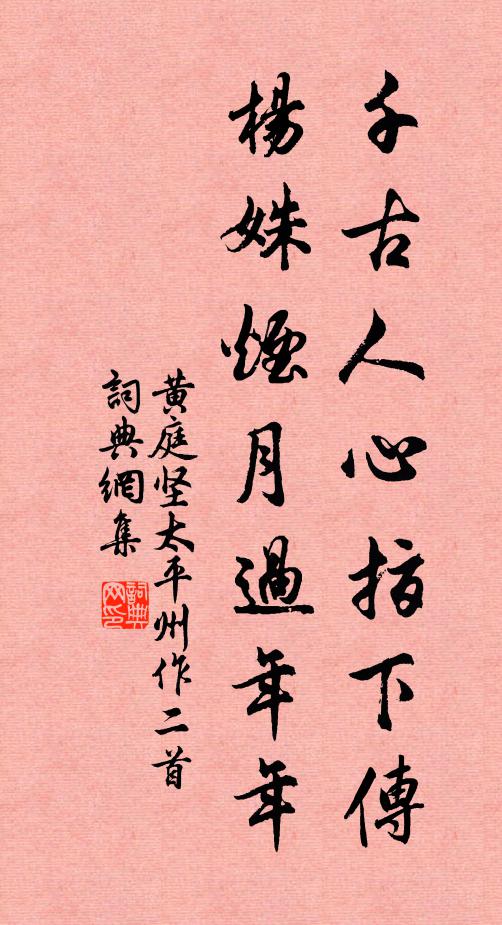 千古人心指下傳
楊姝煙月過年年
黃庭坚太平州作二首
詞典網集
詞典網印